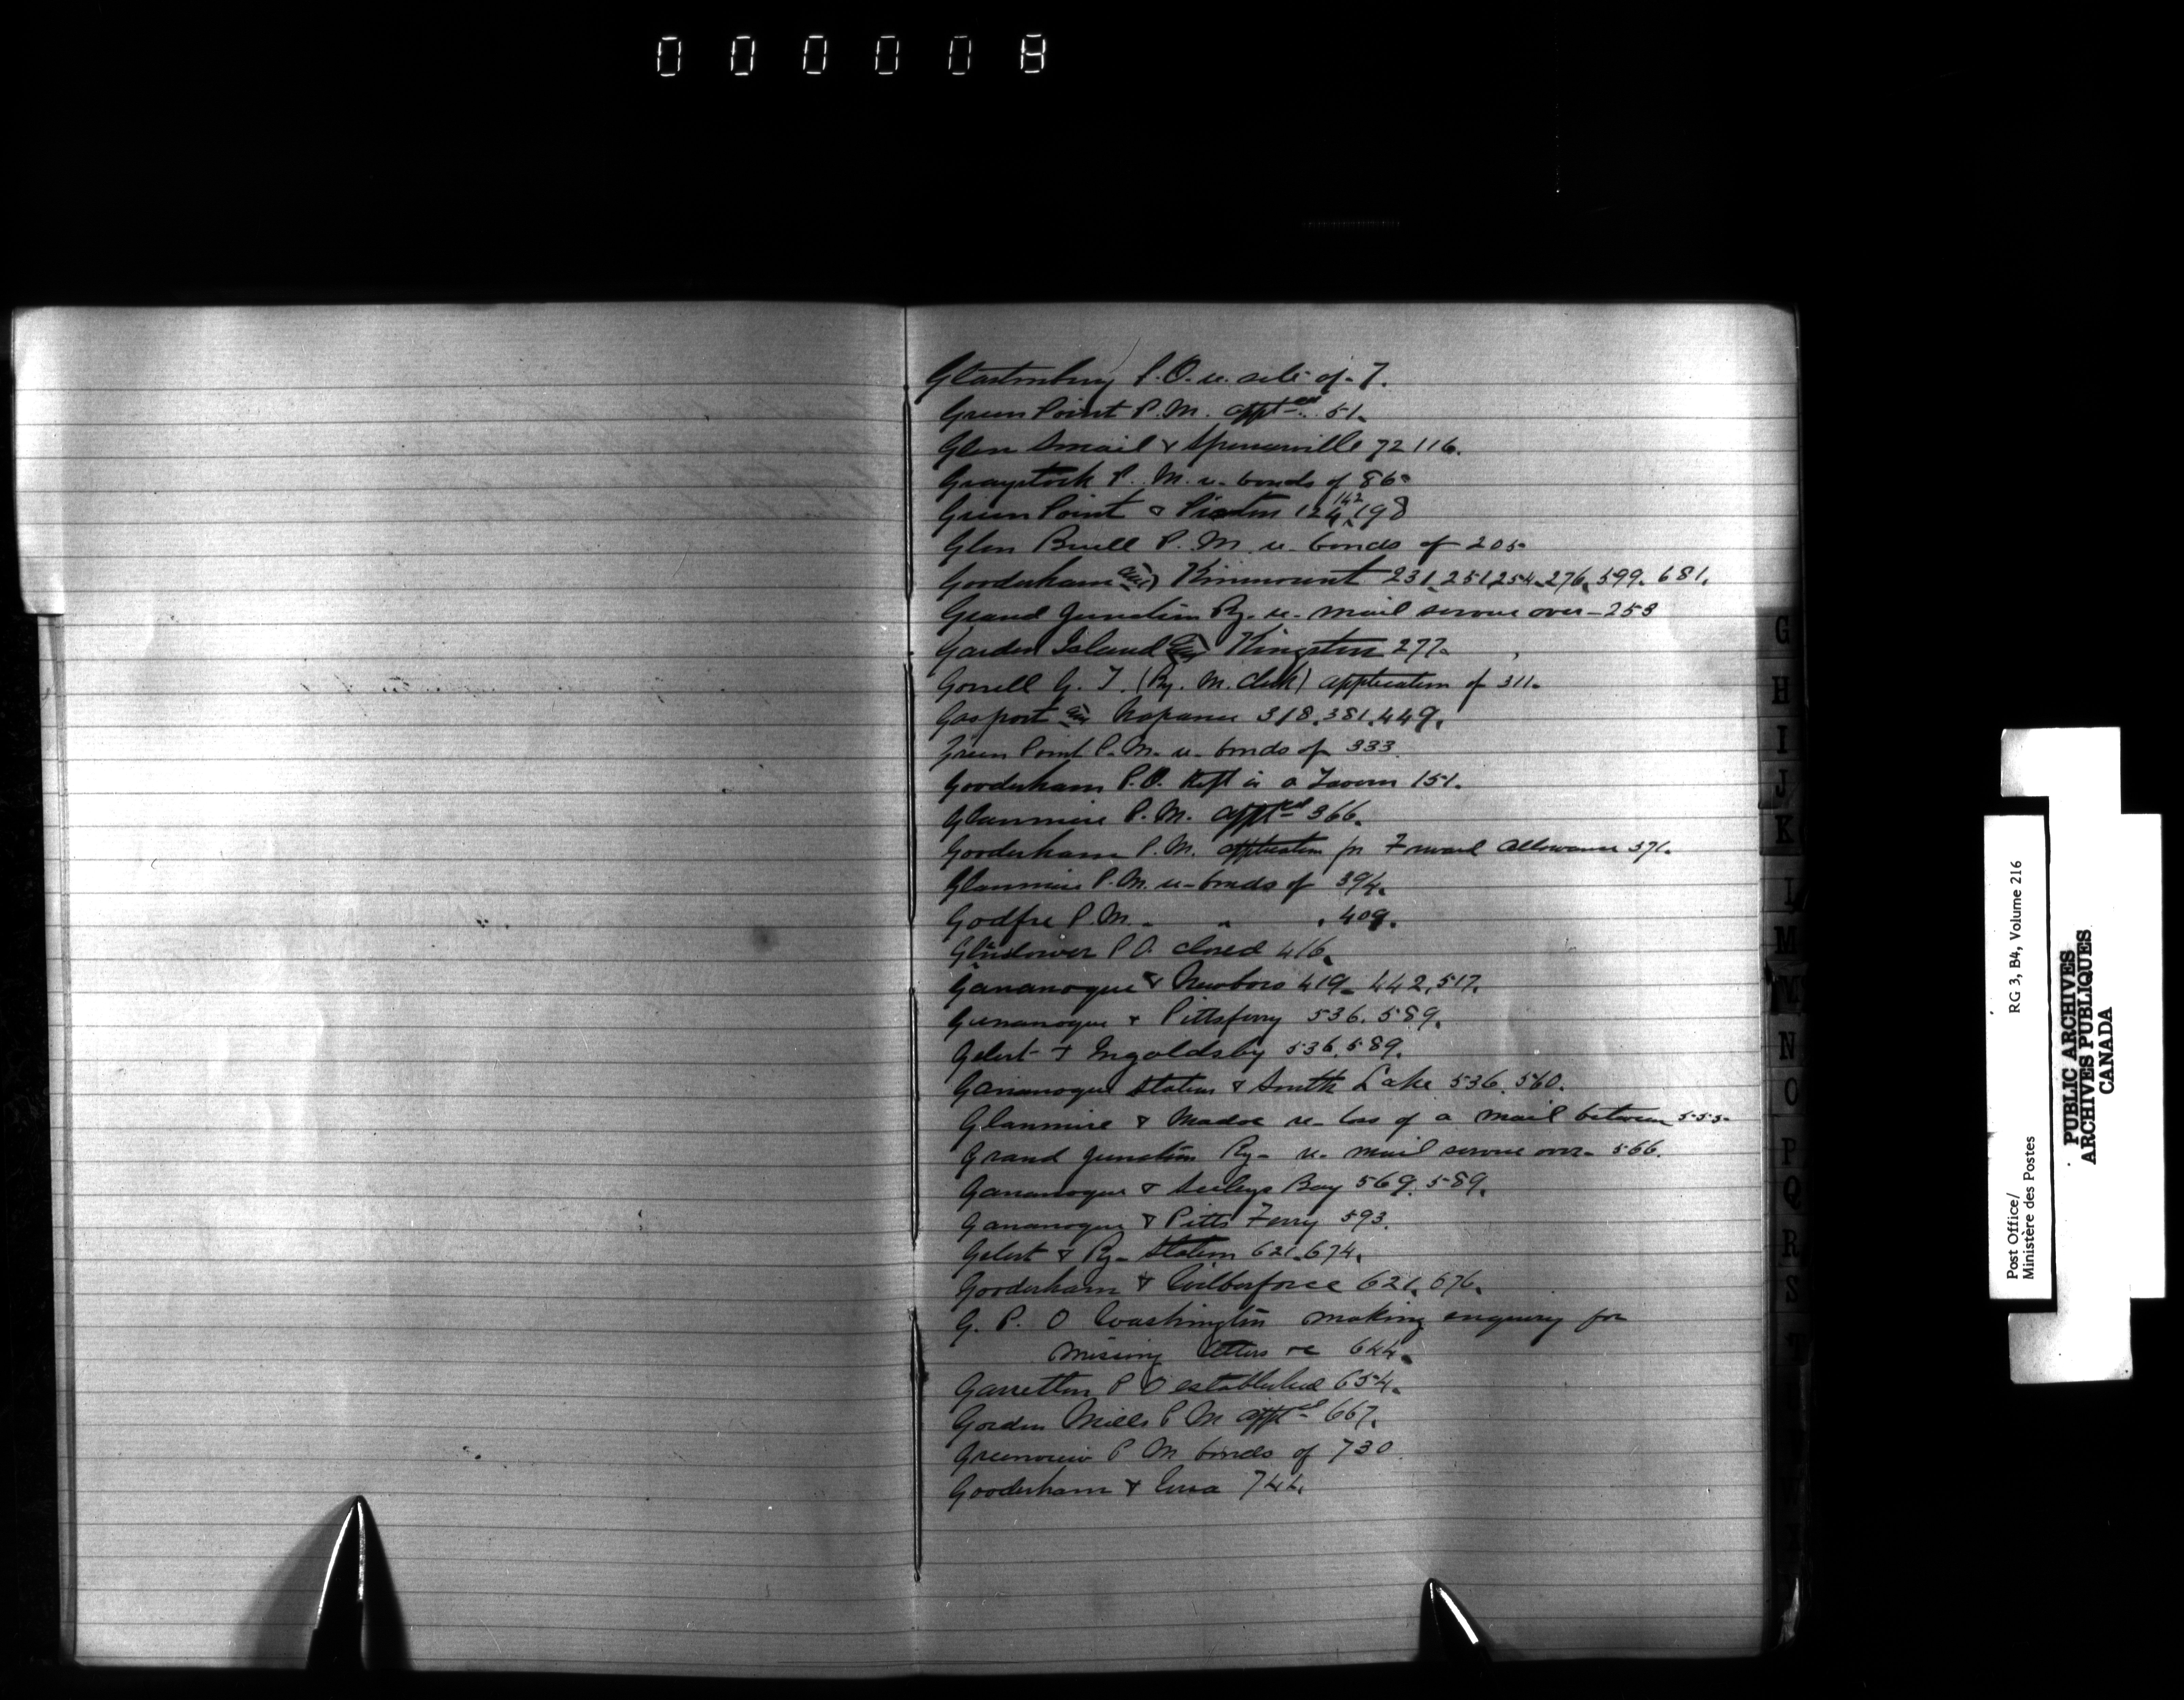 000008
Glastonbury P.O. re. site of. 7.
Green Point P.M. appt ed 51.
Glen Smail & Spencerville 72 116.
Graystock P.M. re. bonds of 86.
Green Point & Picton 124, 142 198
Glen Buell P.M. re. bonds of 205.
Gooderham and Kinmount 231, 251, 254. 276. 599. 681.
Grand Junction Ry. re. mail service over - 253
Garden Island and Kingston 277.
Gorrell G. T. (Ry. M. Clerk) application of 311.
Gosport and Napanee 318. 381. 449.
Green Point P.M. re. bonds of 333
Gooderham P.O. Kept in a Tavern 151.
Glanmire P.M. apptd 366.
Gooderham P.M. application for Forward Allowance 371.
Glanmire P.M. re - bonds of 394.
Godfre P.M. " " " 409.
Glendower P.O. closed 416.
Gananoque & Newboro 419. 442, 517.
Gananoque & Pittsferry 536. 589.
Gelert & Ingoldsby 536. 589.
Gananoque Station & South Lake 536. 560.
Glanmire & Madoc re - loss of a mail between 555.
Grand Junction Ry - re. mail service over. 566.
Gananoque & Seeleys Bay 569. 589.
Gananoque & Pitts Ferry 593.
Gelert & Ry - Station 621. 674.
Gooderham & Wilberforce 621. 676.
G. P. O Washington making enquiry for
missing letters re 644.
Garretton P O established 654.
Gorden Mills P M apptd 667.
Greenview P M bonds of 730
Gooderham & Ursa 744.
G
H
I
J
K
L
M
N
O
P
Q
R
S
T
Post Office/
Ministère des Postes
RG 3, B4, Volume 216
PUBLIC ARCHIVES
ARCHIVES PUBLIQUES
CANADA